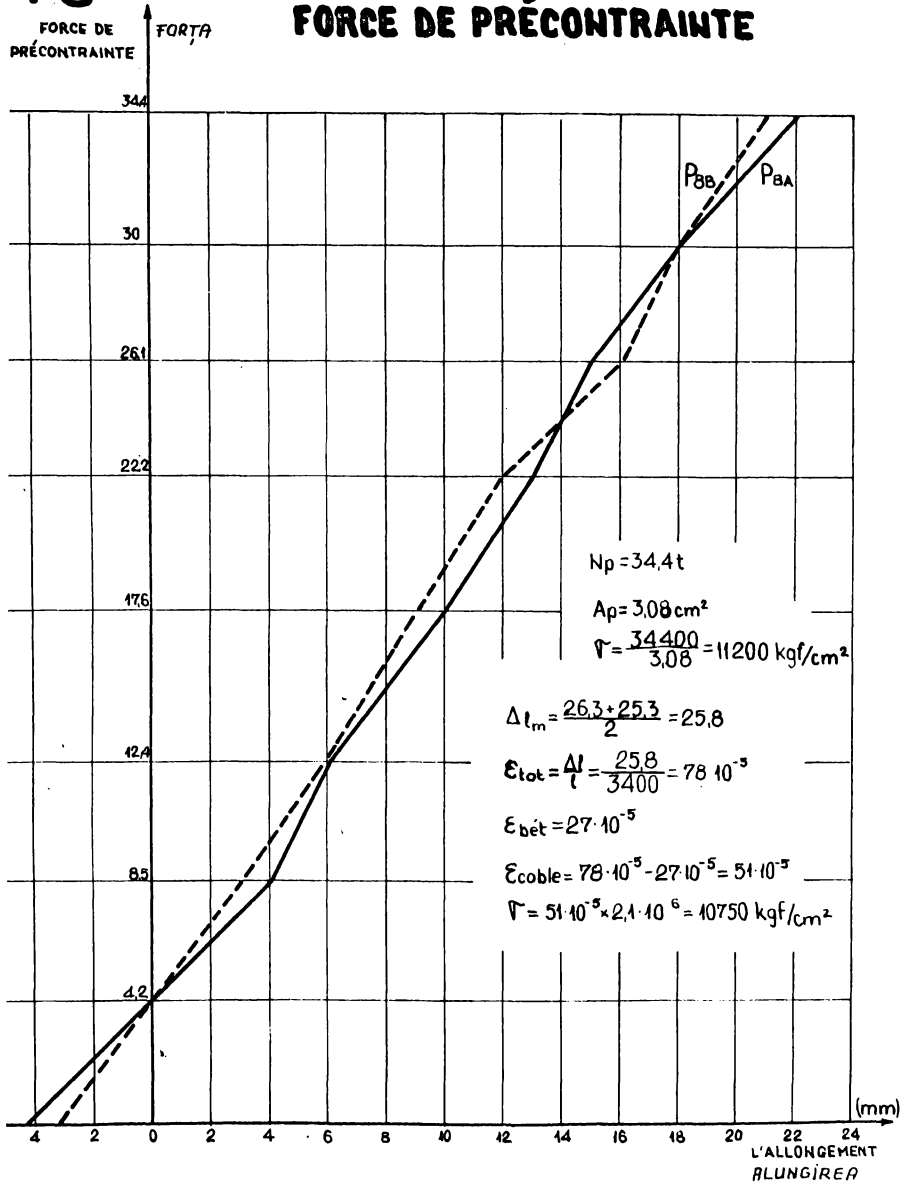 FORCE DE PRÉCONTRAINTE
FORCE DE
PRÉCONTRAINTE
FORȚA
34.4
30
26.1
22.2
17,6
12,4
8,5
4,2
P8B
P8A
Np = 34,4 t
Ap = 3,08 cm²
σ = 34400 / 3,08 = 11200 kgf/cm²
Δlm = 26,3 + 25,3 / 2 = 25,8
Ɛtot = Δl / l = 25,8 / 3400 = 78 10⁻⁵
Ɛbét = 27·10⁻⁵
Ɛcoble = 78·10⁻⁵ - 27·10⁻⁵ = 51·10⁻⁵
σ = 51·10⁻⁵ × 2,1·10⁶ = 10750 kgf/cm²
(mm)
4 2 0 2 4 6 8 10 12 14 16 18 20 22 24
L'ALLONGEMENT
ALUNGIREA